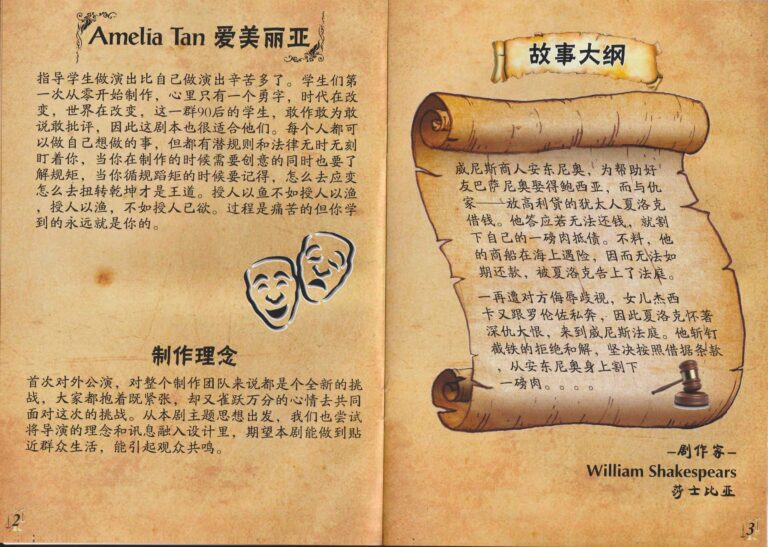 Amelia Tan 爱美丽亚
指导学生做演出比自己做演出辛苦多了。学生们第
一次从零开始制作，心里只有一个勇字，时代在改
变，世界在改变，这一群90后的学生，敢作敢为敢
说敢批评，因此这剧本也很适合他们。每个人都可
以做自己想做的事，但都有潜规则和法律无时无刻
盯着你，当你在制作的时候需要创意的同时也要了
解规矩，当你循规蹈矩的时候要记得，怎么去应变
怎么去扭转乾坤才是王道。授人以鱼不如授人以渔
，授人以渔，不如授人已欲。过程是痛苦的但你学
到的永远就是你的。
制作理念
首次对外公演，对整个制作团队来说都是个全新的挑
战，大家都抱着既紧张，却又雀跃万分的心情去共同
面对这次的挑战。从本剧主题思想出发，我们也尝试
将导演的理念和讯息融入设计里，期望本剧能做到贴
近群众生活，能引起观众共鸣。
2
故事大纲
威尼斯商人安东尼奥，为帮助好
友巴萨尼奥娶得鲍西亚，而与仇
家——放高利贷的犹太人夏洛克
借钱。他答应若无法还钱，就割
下自己的一磅肉抵债。不料，他
的商船在海上遇险，因而无法如
期还款，被夏洛克告上了法庭。
一再遭对方侮辱歧视，女儿杰西
卡又跟罗伦佐私奔，因此夏洛克怀著
深仇大恨，来到威尼斯法庭。他斩钉
截铁的拒绝和解，坚决按照借据条款
，从安东尼奥身上割下
一磅肉。。。。
–剧作家–
William Shakespears
莎士比亚
3